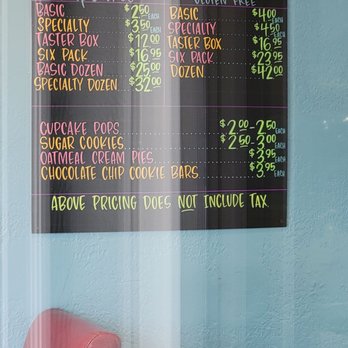 GLUTEN FREE
BASIC $2.50 EACH
SPECIALTY $3.50 EACH
TASTER BOX $12.00
SIX PACK $16.95
BASIC DOZEN $25.00
SPECIALTY DOZEN $32.00
BASIC $4.00 EACH
SPECIALTY $4.50 EACH
TASTER BOX $16.95
SIX PACK $23.95
DOZEN $42.00
CUPCAKE POPS $2.00-2.50 EACH
SUGAR COOKIES $2.50-3.00 EACH
OATMEAL CREAM PIES $3.95 EACH
CHOCOLATE CHIP COOKIE BARS $3.95 EACH
ABOVE PRICING DOES NOT INCLUDE TAX.